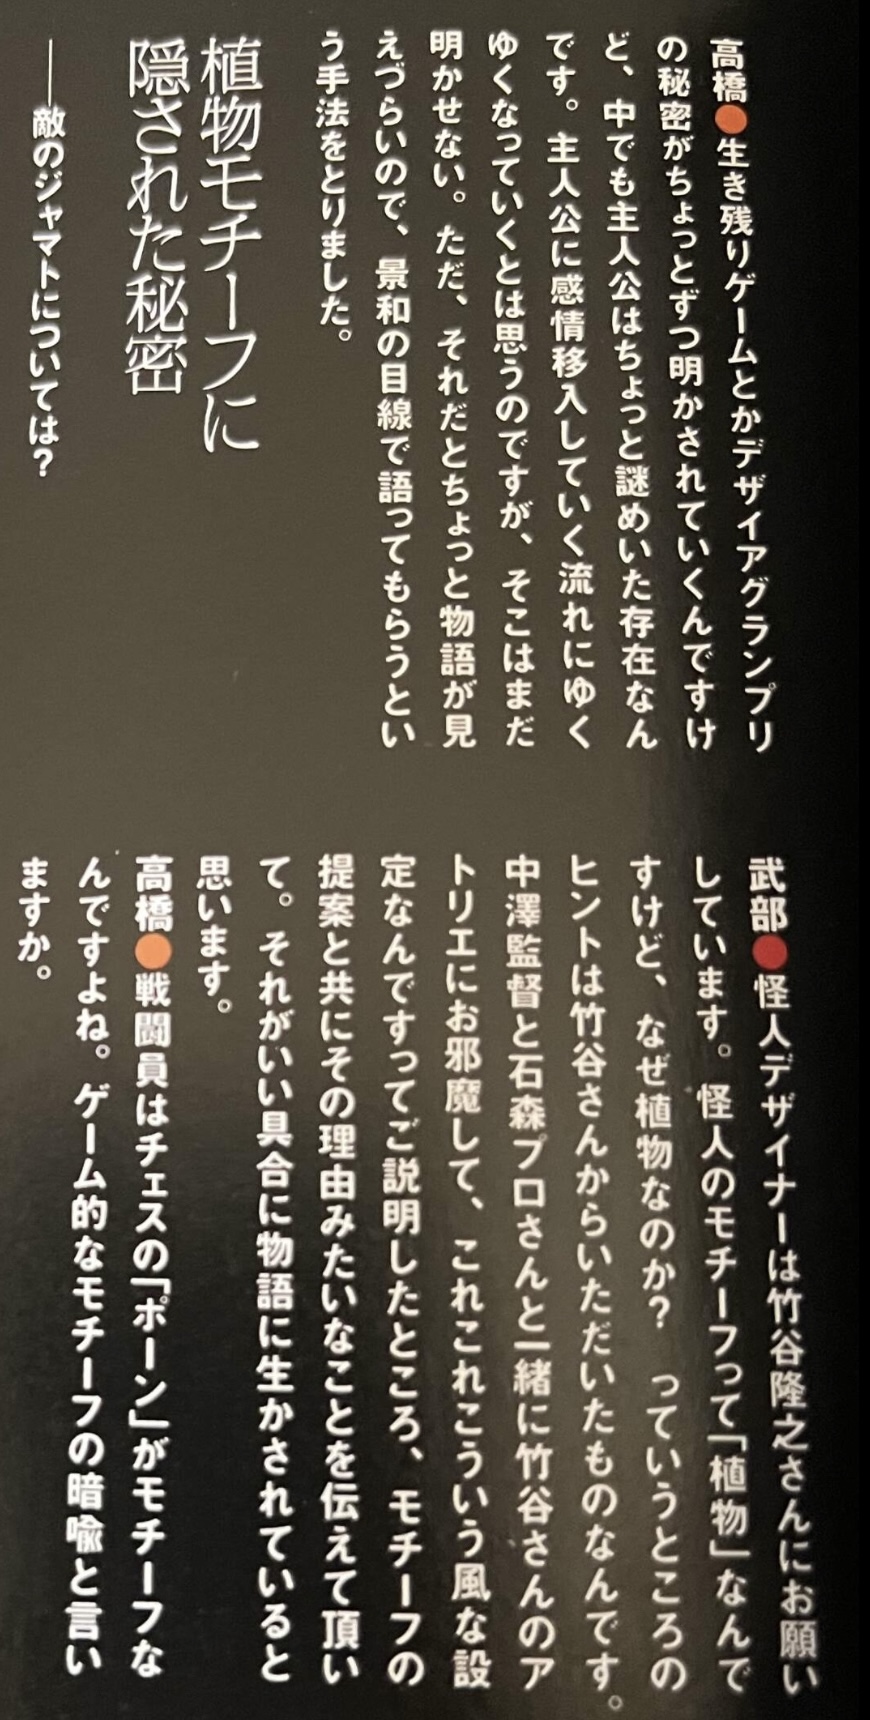 高橋●生き残りゲームとかデザイアグランプリ
の秘密がちょっとずつ明かされていくんですけ
ど、中でも主人公はちょっと謎めいた存在なん
です。主人公に感情移入していく流れにゆく
ゆくなっていくとは思うのですが、そこはまだ
明かせない。ただ、それだとちょっと物語が見
えづらいので、景和の目線で語ってもらうとい
う手法をとりました。
植物モチーフに
隠された秘密
──敵のジャマトについては?
武部●怪人デザイナーは竹谷隆之さんにお願い
しています。怪人のモチーフって「植物」なんで
すけど、なぜ植物なのか? っていうところの
ヒントは竹谷さんからいただいたものなんです。
中澤監督と石森プロさんと一緒に竹谷さんのア
トリエにお邪魔して、これこれこういう風な設
定なんですってご説明したところ、モチーフの
提案と共にその理由みたいなことを伝えて頂い
て。それがいい具合に物語に生かされていると
思います。
高橋●戦闘員はチェスの「ポーン」がモチーフな
んですよね。ゲーム的なモチーフの暗喩と言い
ますか。